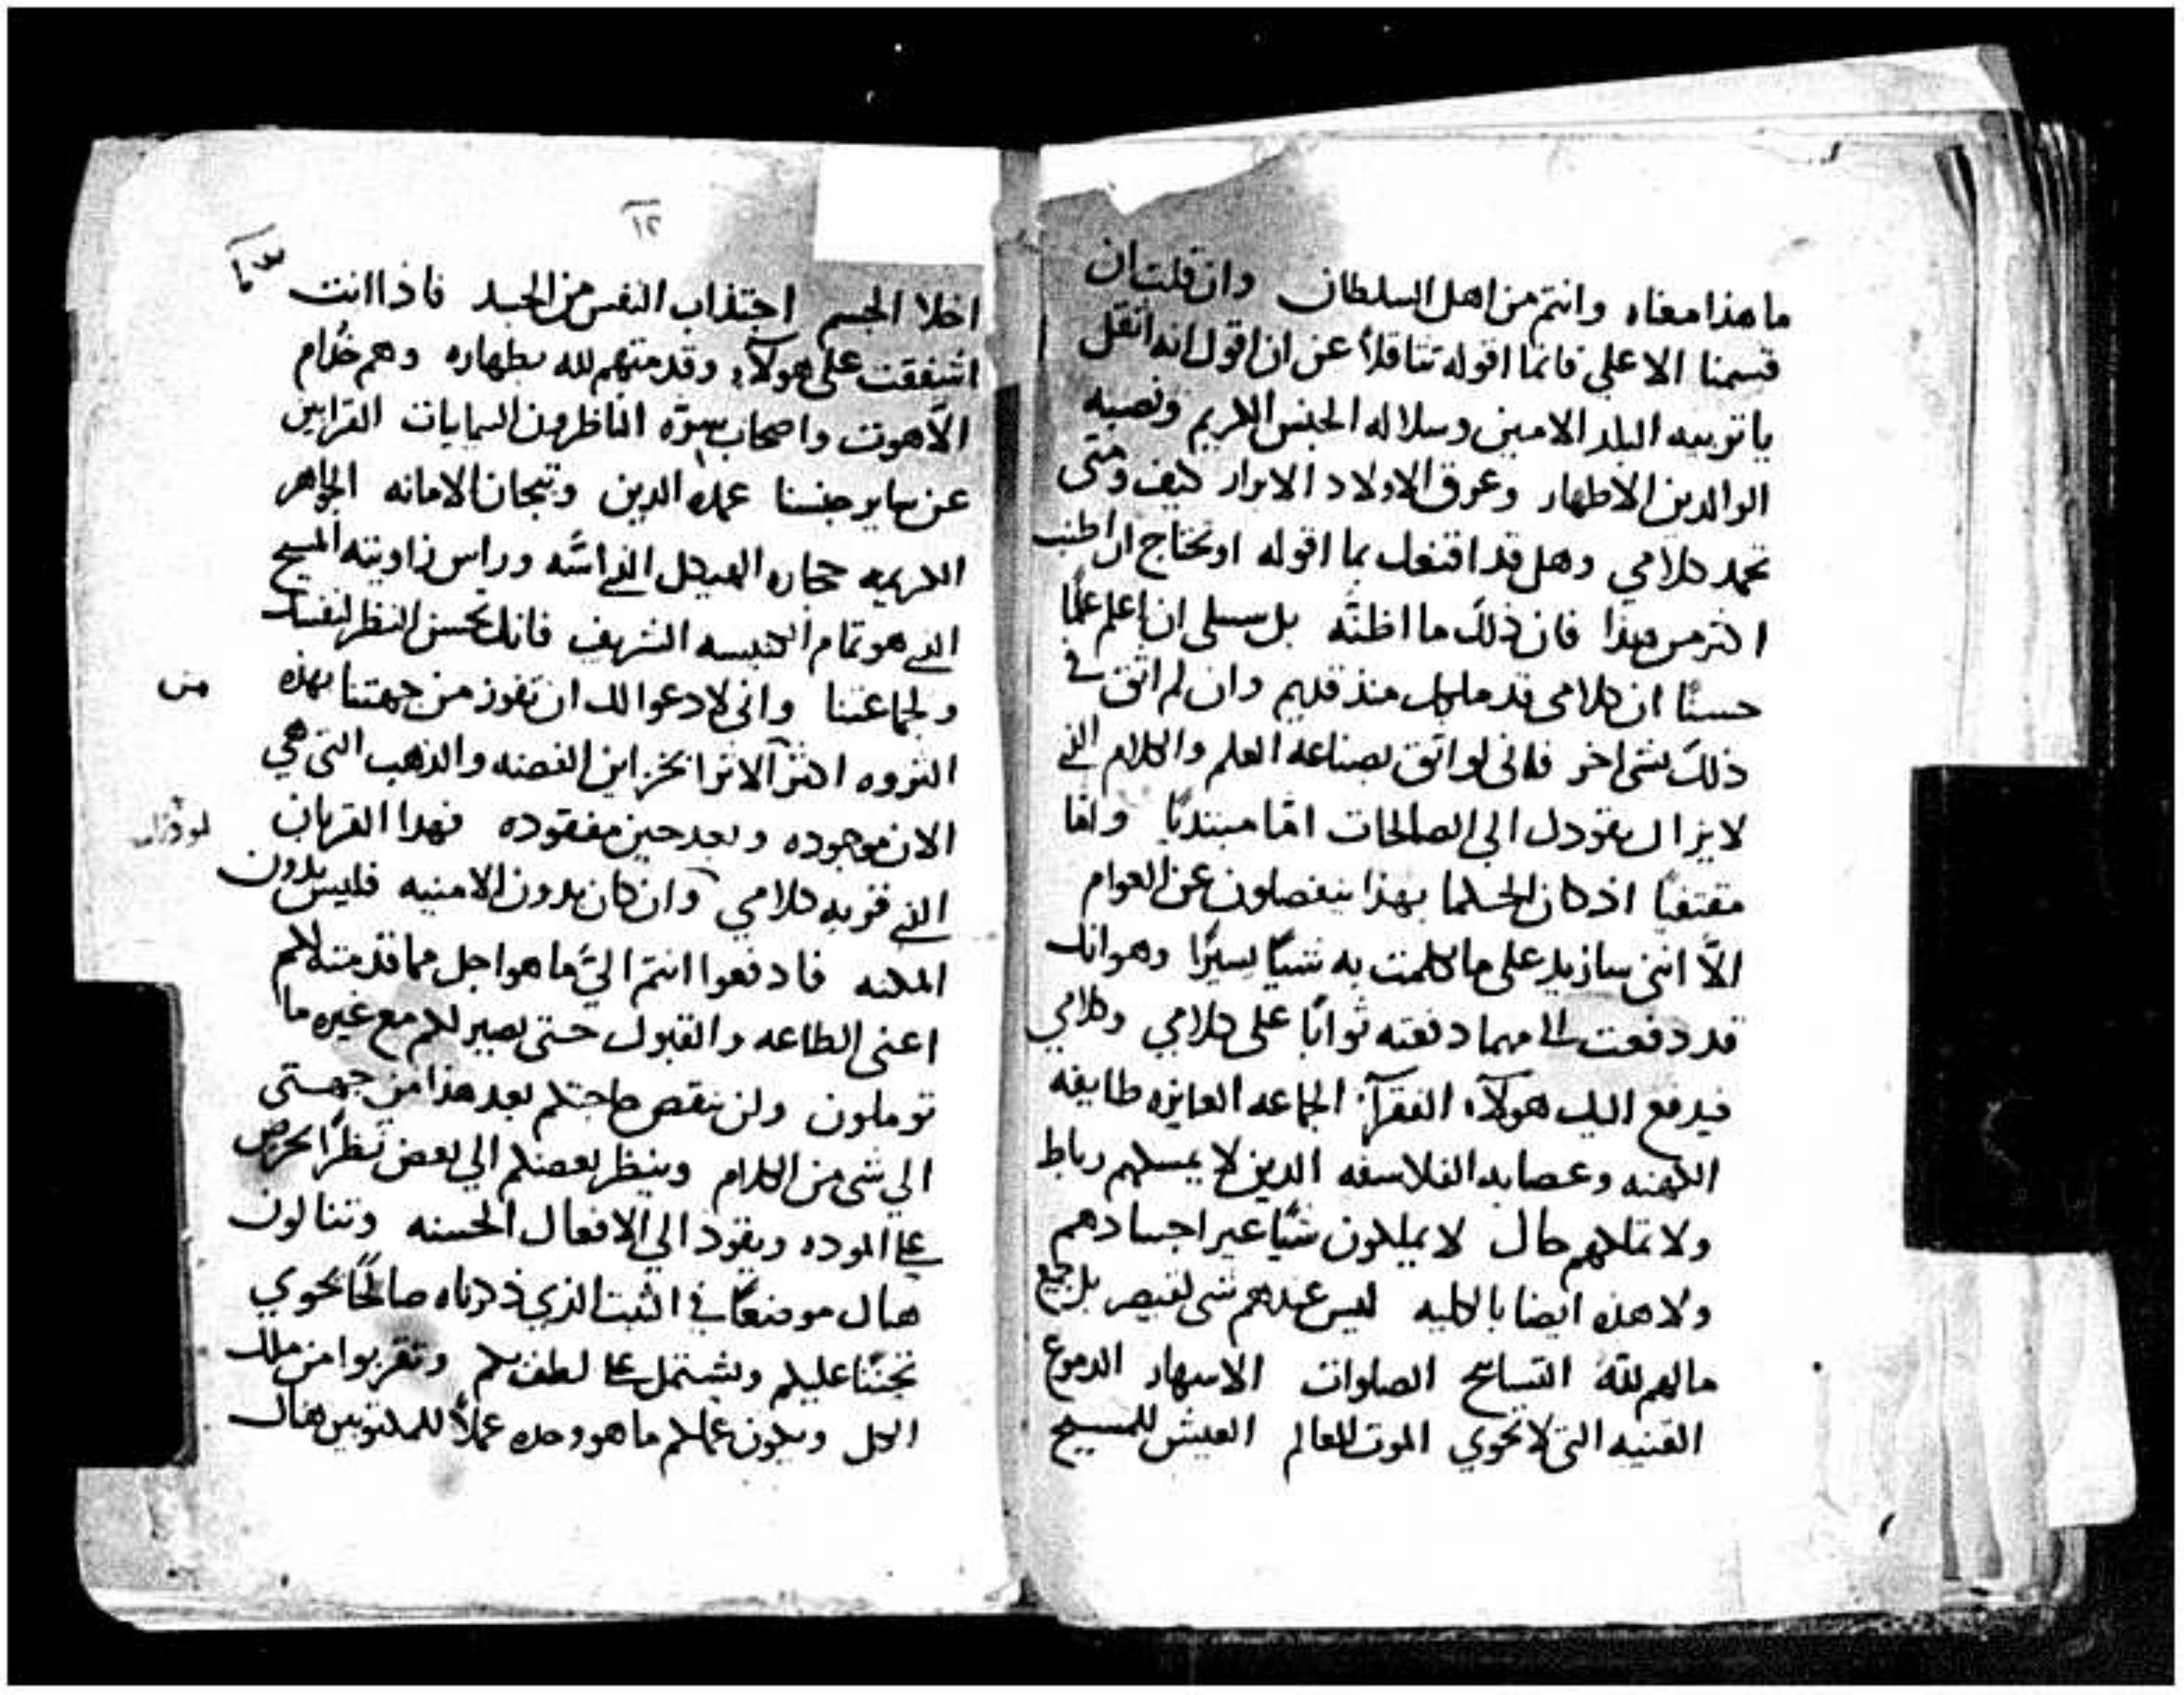 ما هذا معناه وانتم من اهل السلطان وان قلت ان
قسمنا الاعلي فانما اقوله تثاقلاً عن ان اقول انه اثقل
يا تربيه البلد الامين وسلاله الجنس الكريم ونصبه
الوالدين الاطهار وعرق الاولاد الابرار كيف ومتى
تحمد كلامي وهل قد اقنعك بما اقوله او تحتاج ان اطنب
اكثر من هذا فان ذلك ما اظنّه بل سبيلى ان اعلم علمًا
حسنًا ان كلامى قد ملكك منذ قديم وان لم اثق في
ذلك بشى اخر فانى لواثق بصناعه العلم والكلام الذي
لا يزال يقودك الي الصالحات امّا مبتديًا وامّا
مقتفيًا اذ كان الحكما بهذا ينفصلون عن العوام
الاّ انني سازيد على ما تكلمت به شيًا يسيرًا وهو انك
قد دفعت الي مهما دفعته ثوابًا على كلامي وكلامي
فيدفع اليك هولآء الفقرآء الجماعه العايزه طايفه
الكهنه وعصابه الفلاسفه الدين لا يمسكهم رباط
ولا تملكهم حال لا يملكون شيًا غير اجسادهم
ولا هذه ايضا بالكليه ليس عندهم شى لقيصر بل جميع
ما لهم للّه التسابيح الصلوات الاسهار الدموع
القنيه التى لا تحوي الموت للعالم العيش للمسيح
١٢
اخلا الجسم اجتذاب النفس من الجسد فاذا انت
اشفقت على هولآء وقدمتهم لله بطهاره وهم خدّام
اللآهوت واصحاب سرّه الناظرون السمايات القرابين
عن ساير جنسنا عمده الدين وتيجان الامانه الجواهر
الكريمه حجاره الهيكل الذي اسّه وراس زاويته المسيح
الذي هو تمام الكنيسه الشريف فانك تحسن النظر لنفسك
ولجماعتنا واني لادعوا لك ان تفوز من جهتنا بهذه
الثروه اكثر الاثر بخزاين الفضه والذهب التى هي
الان موجوده وبعد حين مفقوده فهدا القربان
الذي قربه كلامي وان كان بدون الامنيه فليس بدون
المكنه فادفعوا انتم اليّ ما هو اجل مما قدمته لكم
اعنى الطاعه والقبول حتى يصير لكم مع غيره ما
توملون ولن تنقص حاجتكم بعد هذا من جهتى
الي شى من الكلام وينظر بعضكم الي بعض نظرًا يحرض
علي الموده ويقود الي الافعال الحسنه وتنالون
هناك موضعًا في الثبت الذي ذكرناه صالحًا يحوي
تحننًا عليكم ويشتمل علي لطف بكم وتقربوا من ملك
الكل ويكون عملكم ما هو وحده عملاً للمكتوبين هناك